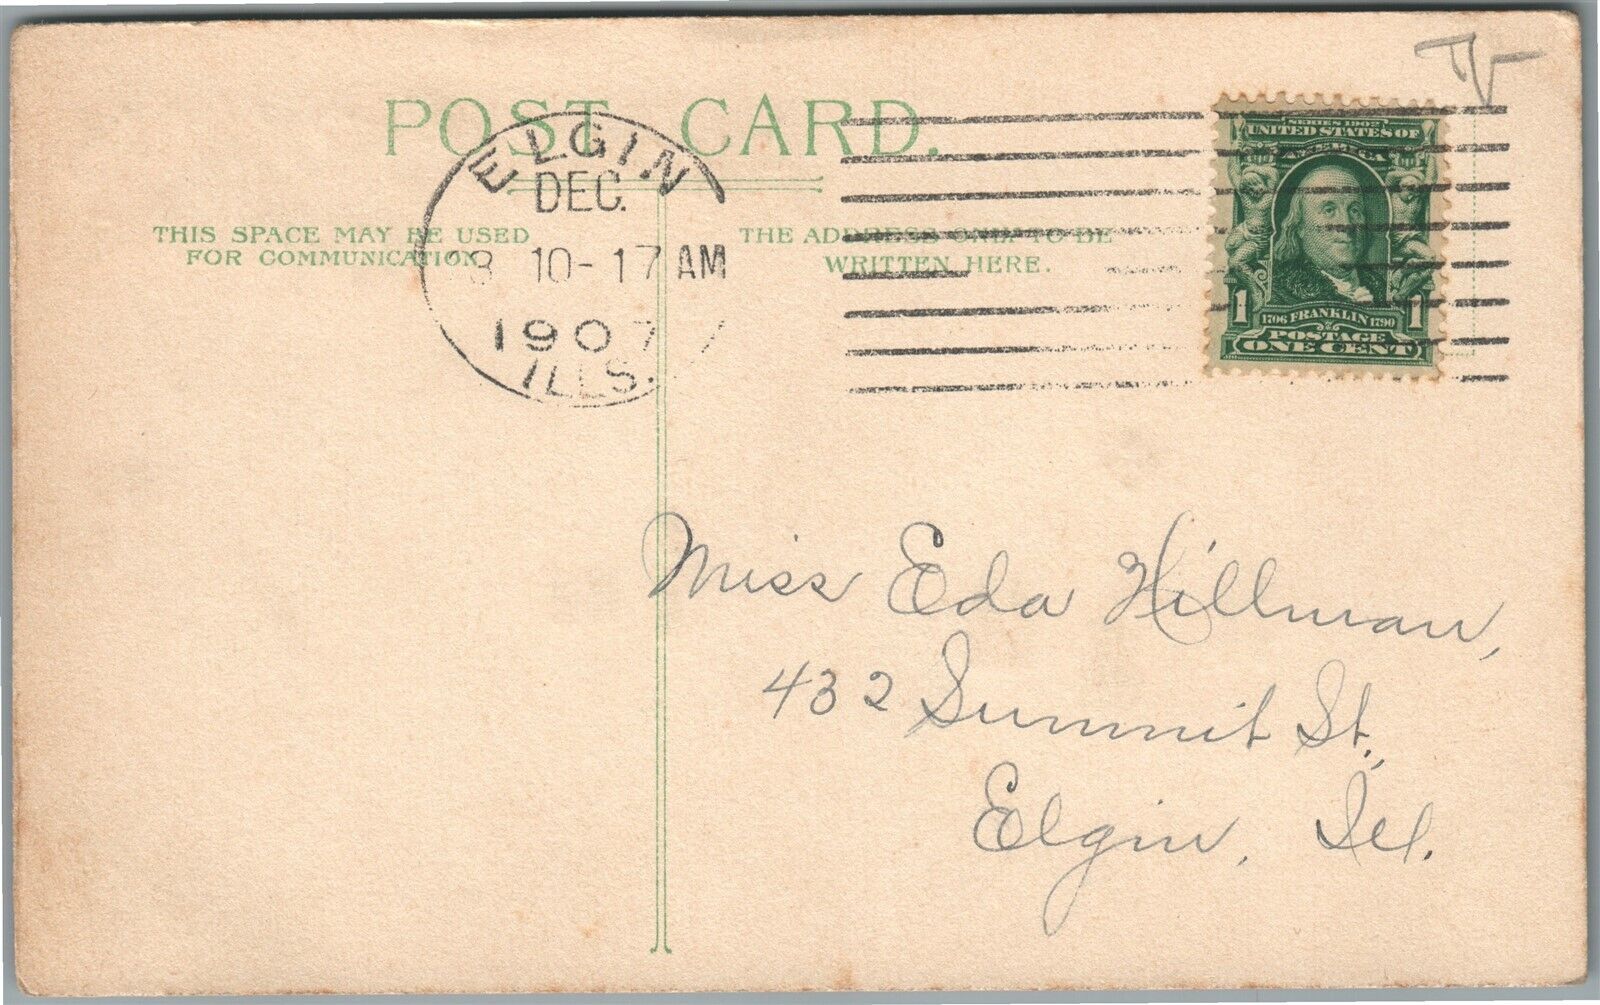 POST CARD.
THIS SPACE MAY BE USED
FOR COMMUNICATION
THE ADDRESS ONLY TO BE
WRITTEN HERE.
ELGIN
DEC.
10-17 AM
1907
ILLS.
SERIES 1902
UNITED STATES OF
AMERICA
1 1
1706 FRANKLIN 1790
POSTAGE
ONE CENT
Miss Eda Hillman,
432 Summit St.,
Elgin, Ill.